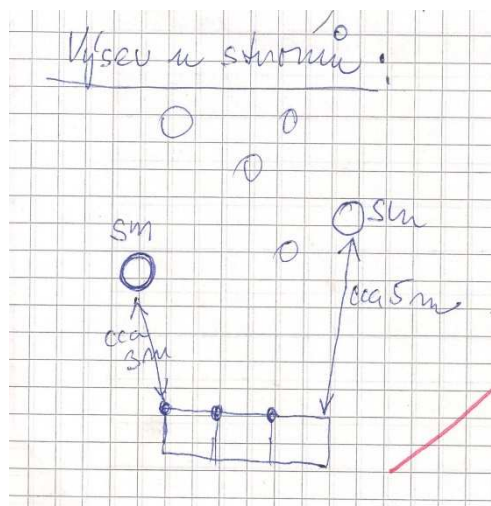 Výsev u stromů:
sm
sm
cca 5 m
cca
3m